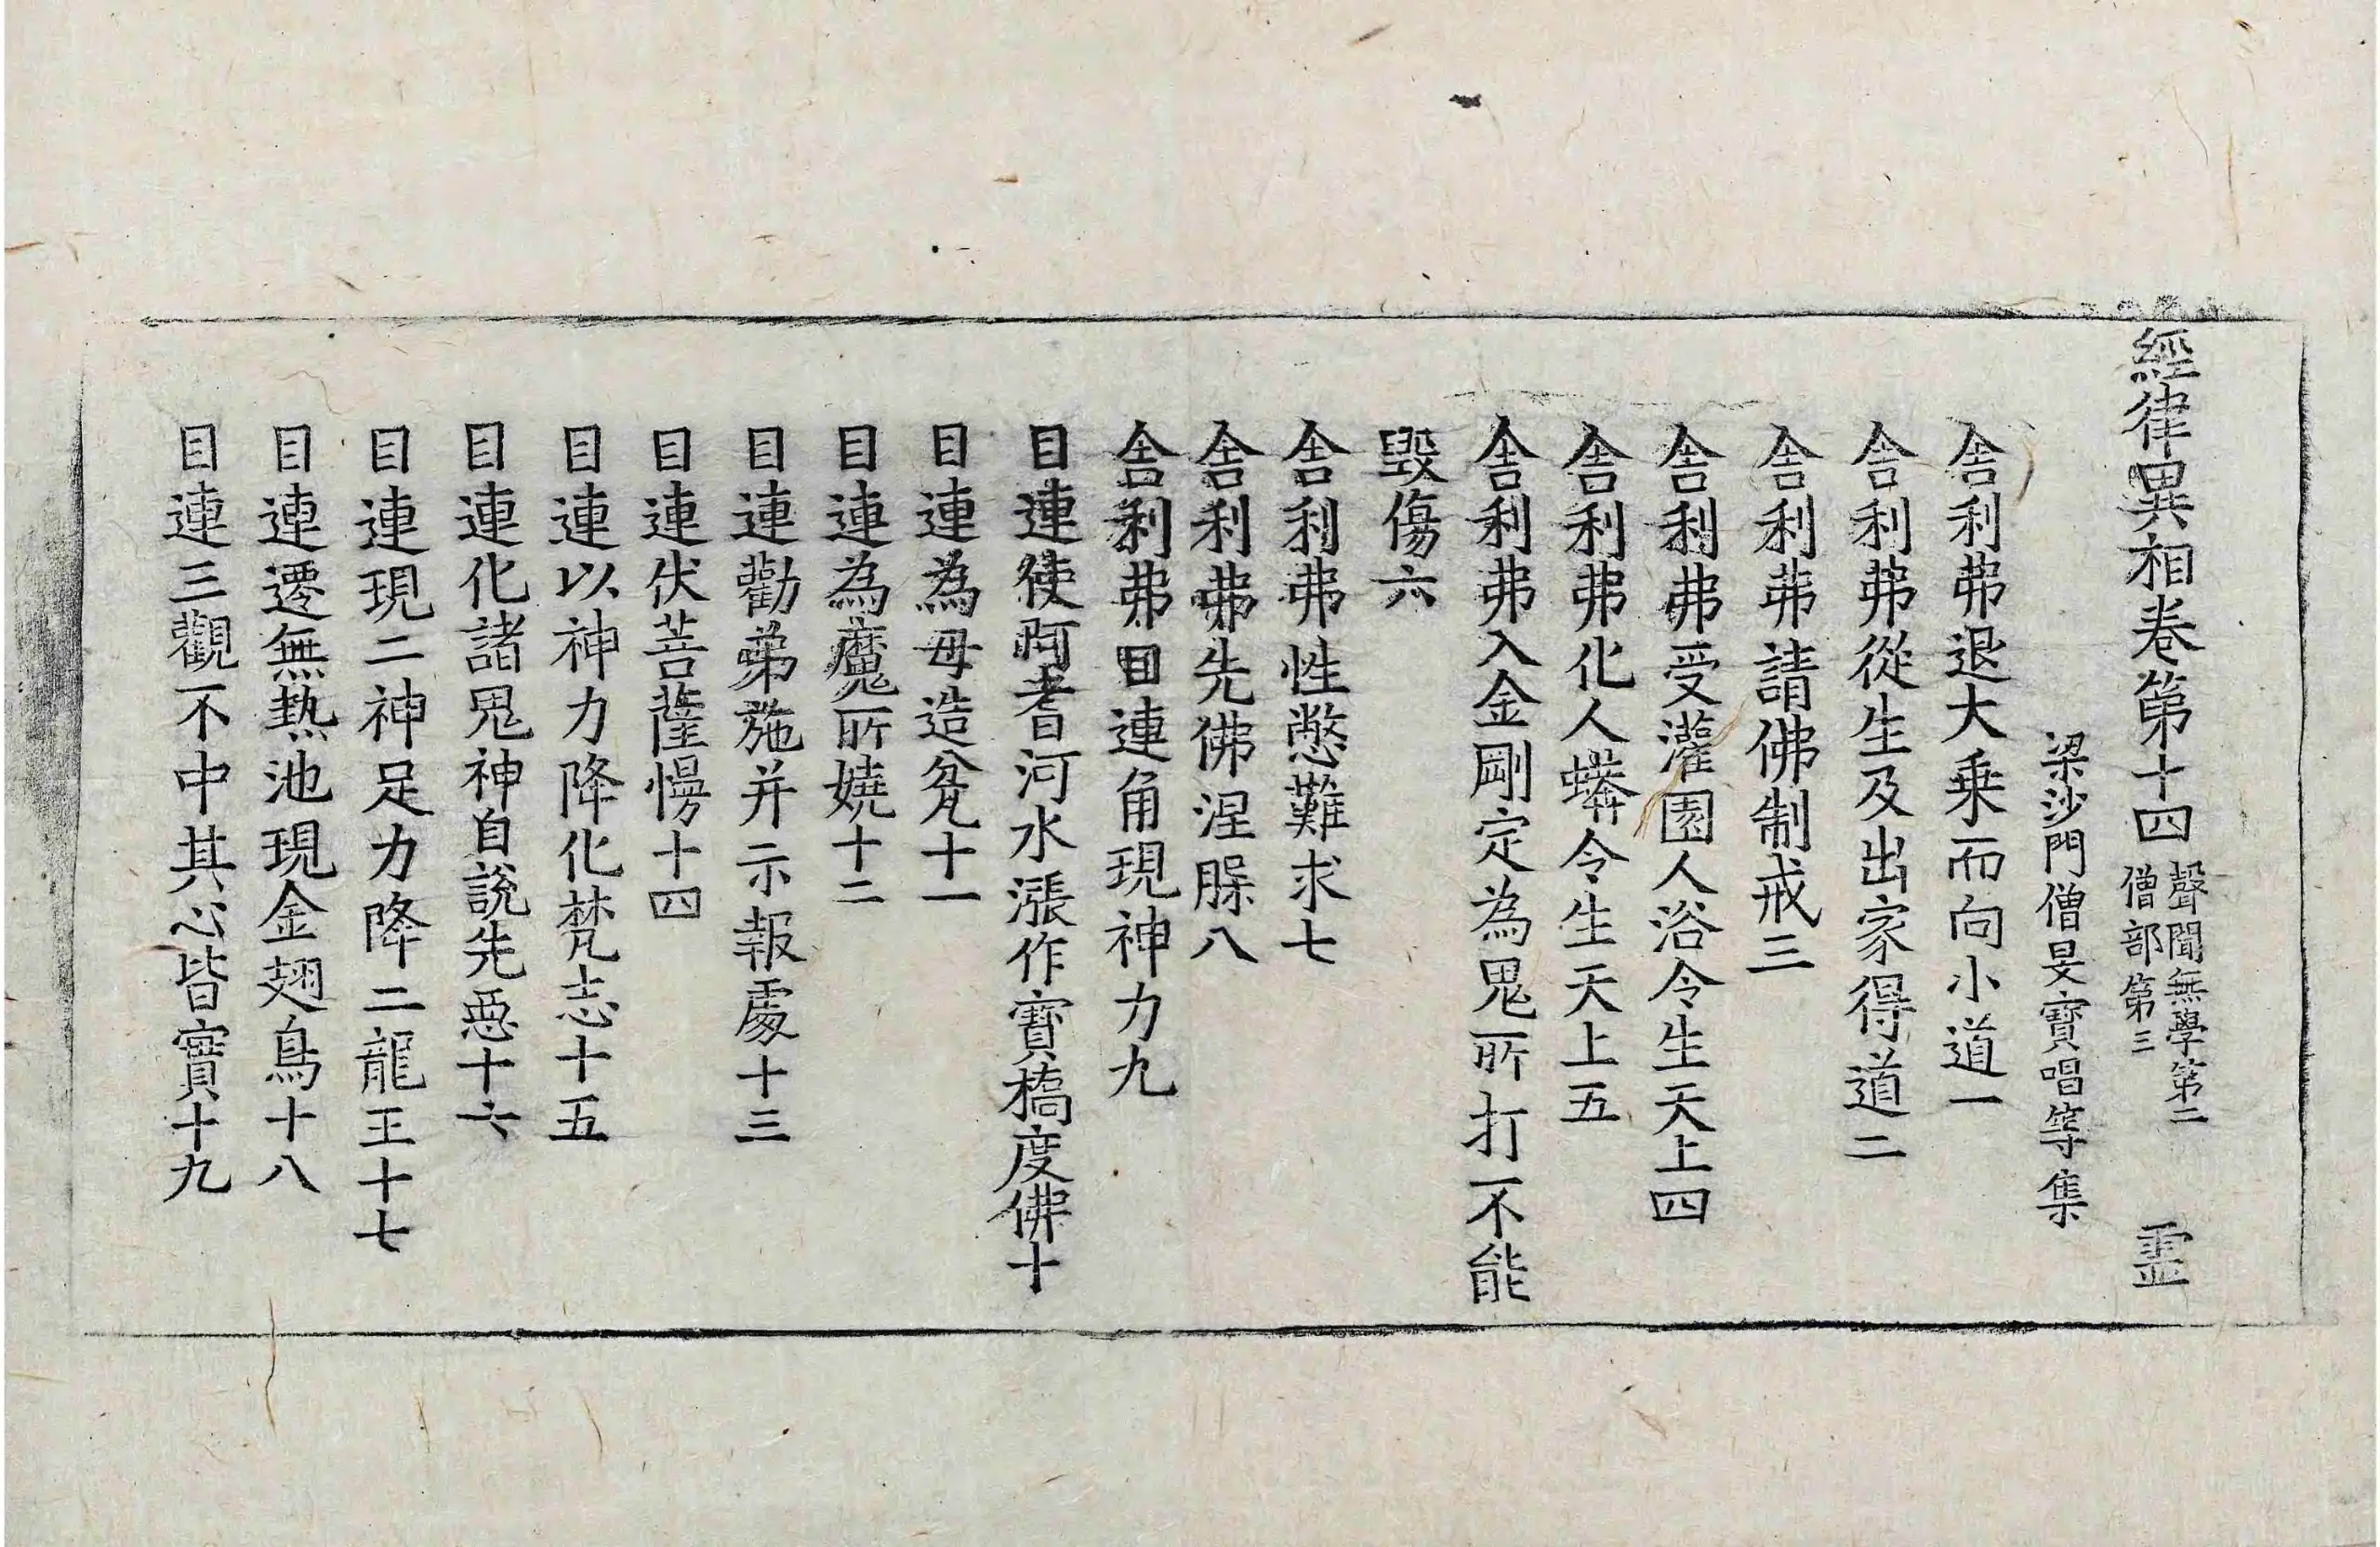 經律異相卷第十四 聲聞無學第二僧部第三 靈
梁沙門僧旻寶唱等集
舍利弗退大乘而向小道一
舍利弗從生及出家得道二
舍利弗請佛制戒三
舍利弗受灌園人浴令生天上四
舍利弗化人蟒令生天上五
舍利弗入金剛定為鬼所打不能
毀傷六
舍利弗性憋難求七
舍利弗先佛涅槃八
舍利弗目連角現神力九
目連使阿耆河水漲作寶橋度佛十
目連為母造瓫十一
目連為魔所嬈十二
目連勸弟施并示報處十三
目連伏菩薩慢十四
目連以神力降化梵志十五
目連化諸鬼神自說先惡十六
目連現二神足力降二龍王十七
目連遷無熱池現金翅鳥十八
目連三觀不中其心皆實十九